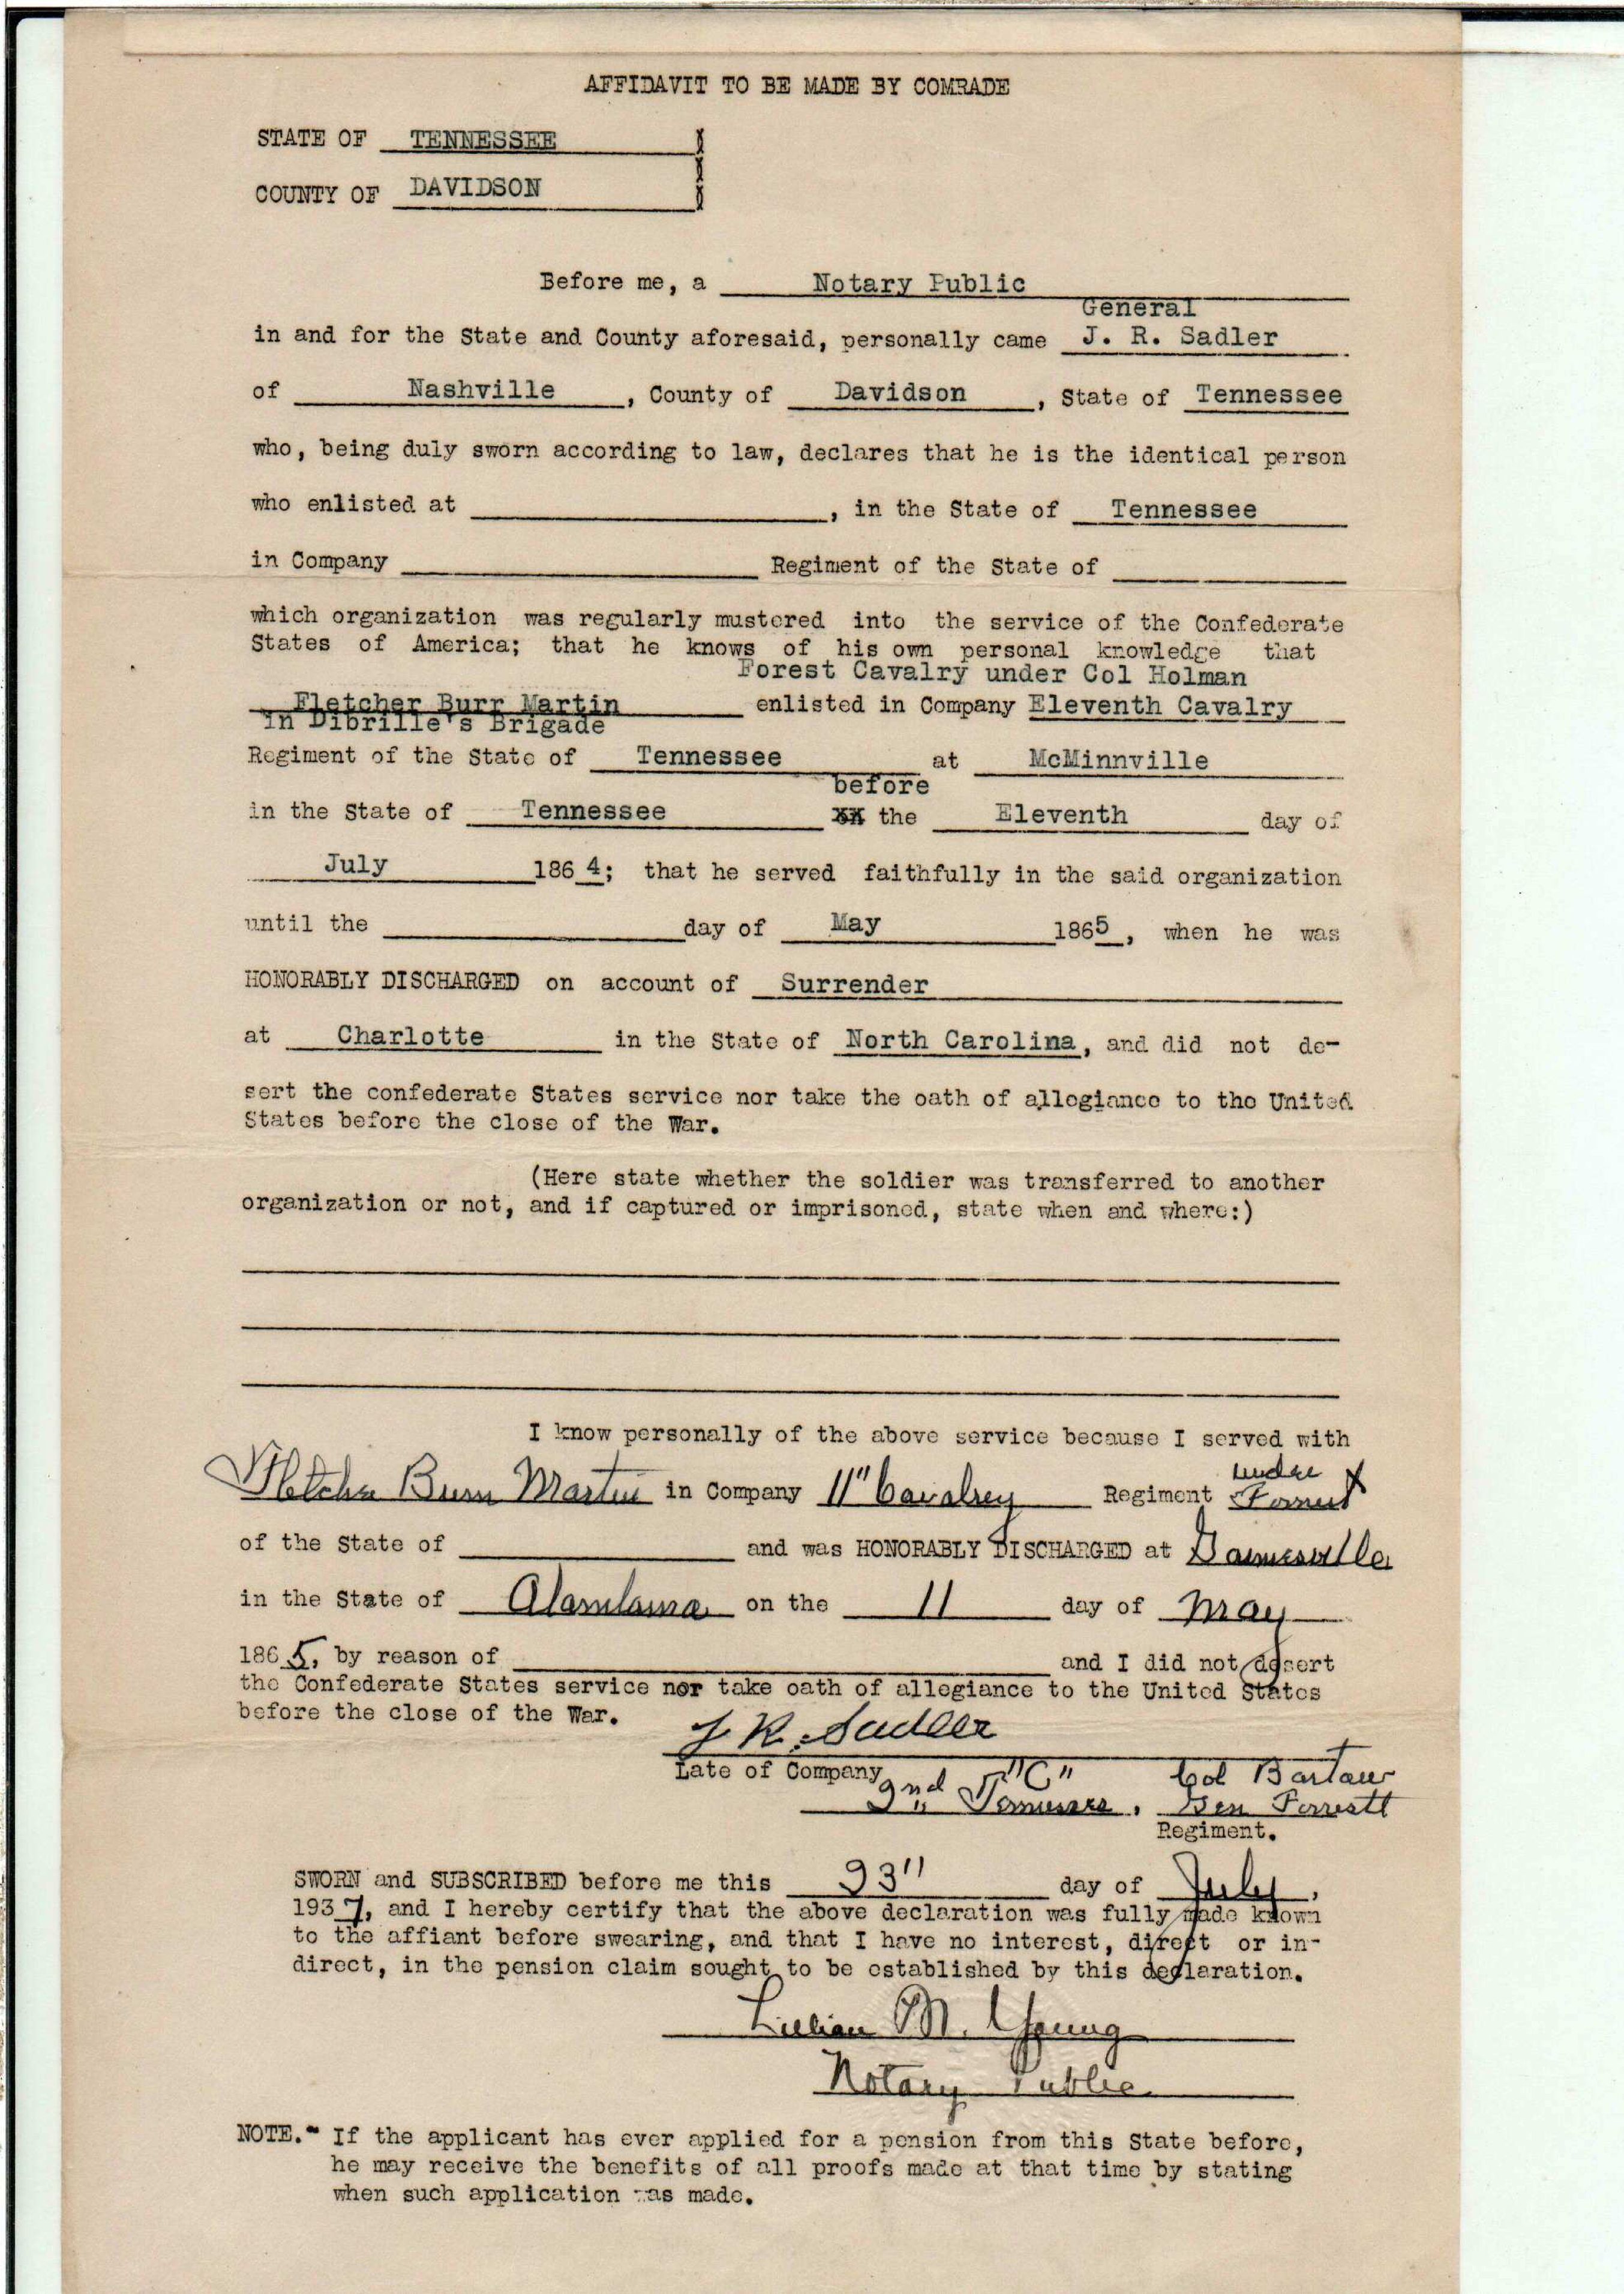 AFFIDAVIT TO BE MADE BY COMRADE
STATE OF TENNESSEE
COUNTY OF DAVIDSON
Before me, a Notary Public
General
in and for the State and County aforesaid, personally came J. R. Sadler
of Nashville, County of Davidson, State of Tennessee
who, being duly sworn according to law, declares that he is the identical person
who enlisted at , in the State of Tennessee
in Company Regiment of the State of
which organization was regularly mustered into the service of the Confederate
States of America; that he knows of his own personal knowledge that
Forest Cavalry under Col Holman
Fletcher Burr Martin enlisted in Company Eleventh Cavalry
in Dibrille's Brigade
Regiment of the State of Tennessee at McMinnville
before
in the State of Tennessee XX the Eleventh day of
July 1864; that he served faithfully in the said organization
until the day of May 1865, when he was
HONORABLY DISCHARGED on account of Surrender
at Charlotte in the State of North Carolina, and did not de-
sert the confederate States service nor take the oath of allegiance to the United
States before the close of the War.
(Here state whether the soldier was transferred to another
organization or not, and if captured or imprisoned, state when and where:)
I know personally of the above service because I served with
under
Fletcher Burr Martin in Company 11" Cavalrey Regiment Forrest X
of the State of and was HONORABLY DISCHARGED at Gainesville
in the State of Alamlama on the 11 day of May
1865, by reason of and I did not desert
the Confederate States service nor take oath of allegiance to the United States
before the close of the War.
J R. Sadler
Late of Company "C" Col Bartaw
2nd Tennessee, Gen Forrestt
Regiment.
SWORN and SUBSCRIBED before me this 23" day of July,
1937, and I hereby certify that the above declaration was fully made known
to the affiant before swearing, and that I have no interest, direct or in-
direct, in the pension claim sought to be established by this declaration.
Lillian M. Young
Notary Public
NOTE.- If the applicant has ever applied for a pension from this State before,
he may receive the benefits of all proofs made at that time by stating
when such application was made.